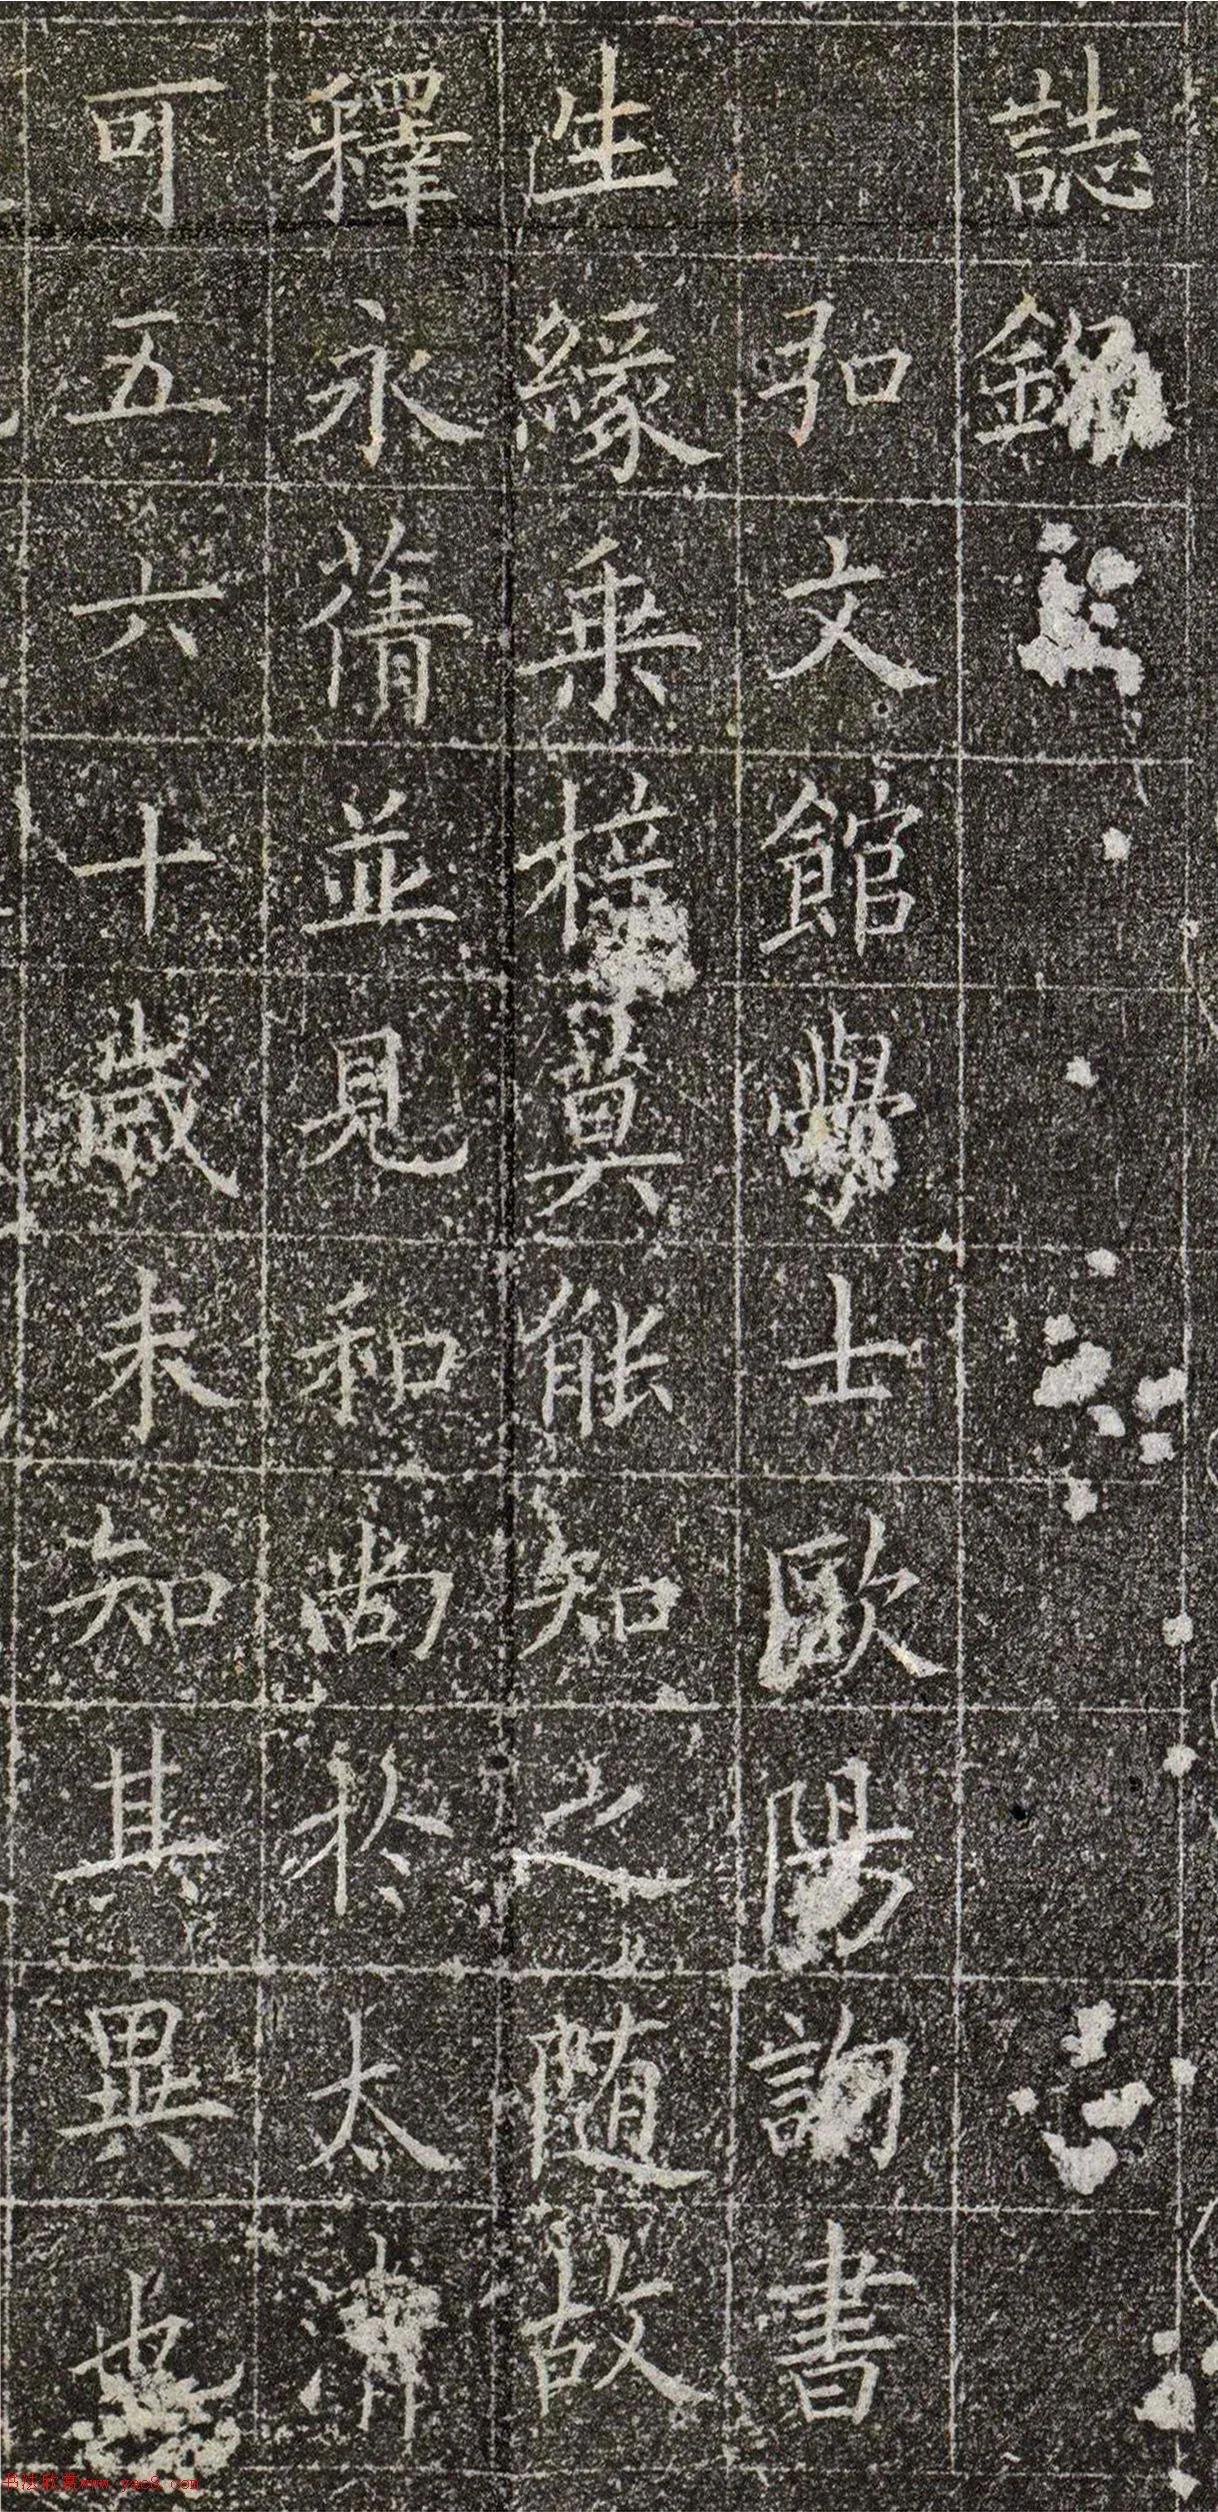 誌銘
弘文館學士歐陽詢書
生緣桒梓莫能知之随故
釋永蒨並見和尚於太清
可五六十歲未知其異也
书法欣赏www.yac8.com